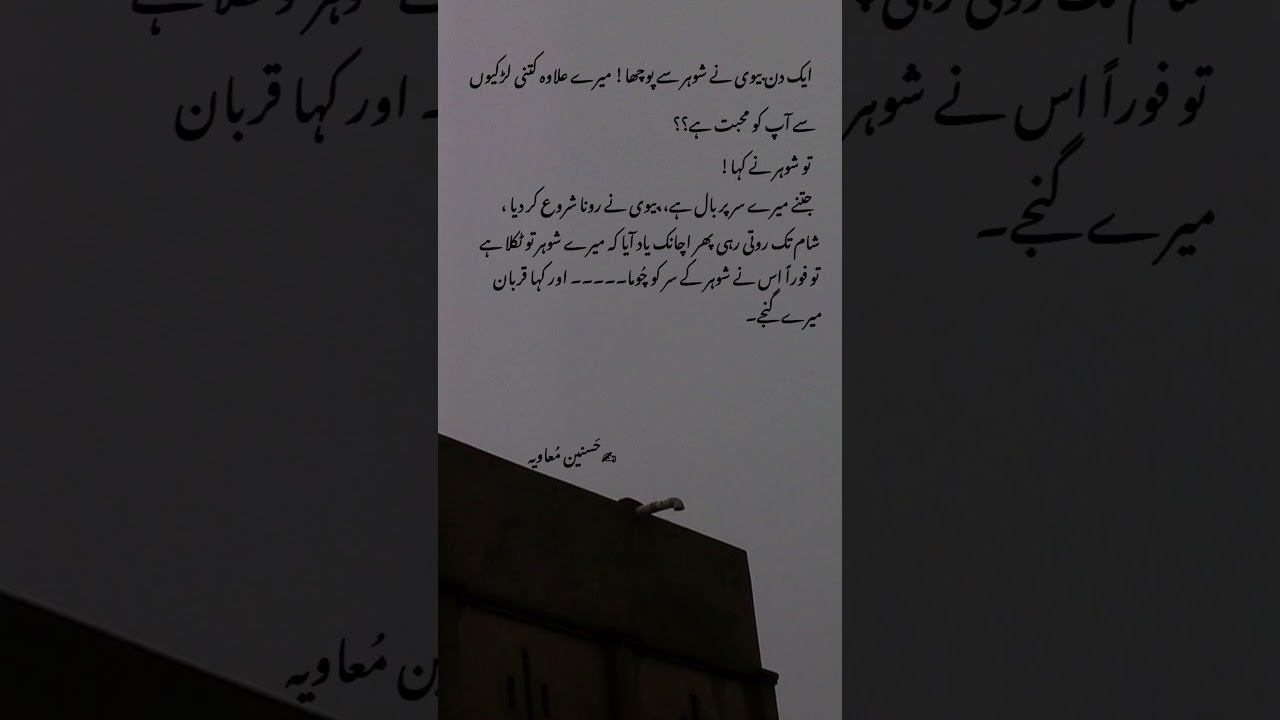 ایک دن بیوی نے شوہر سے پوچھا! میرے علاوہ کتنی لڑکیوں
سے آپ کو محبت ہے؟؟
تو شوہر نے کہا!
جتنے میرے سر پر بال ہے، بیوی نے رونا شروع کر دیا ،
شام تک روتی رہی پھر اچانک یاد آیا کہ میرے شوہر تو ٹکلا ہے
تو فوراً اس نے شوہر کے سر کو چُوما۔۔۔۔۔ اور کہا قربان
میرے گنجے۔
✍حَسنین مُعاویہ